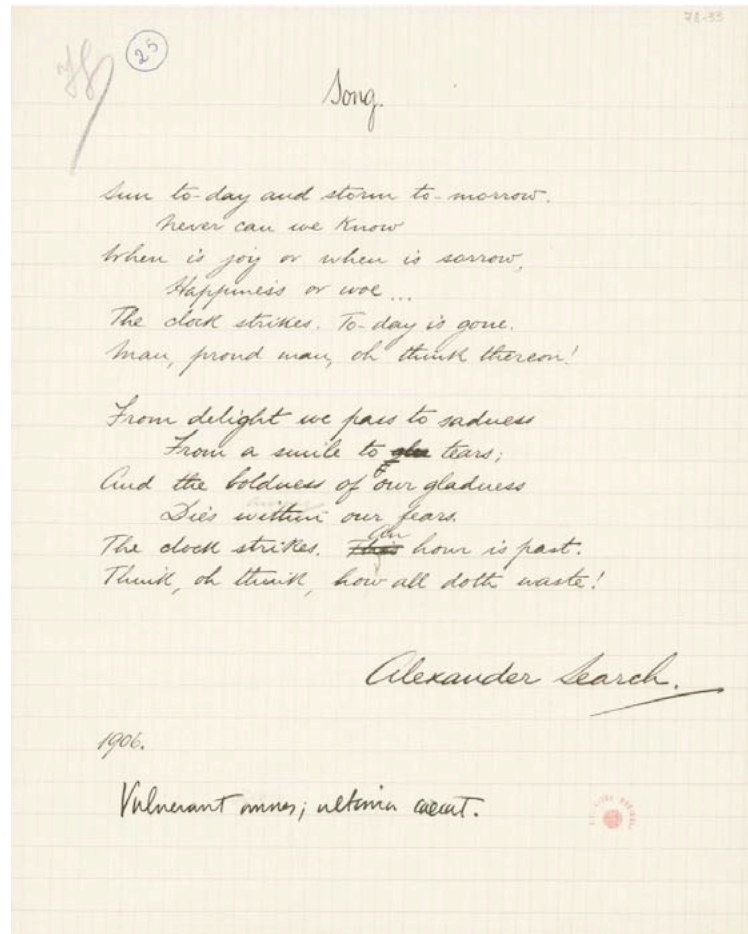 78-93
25
Song.
Sun to-day and storm to-morrow.
Never can we know
When is joy or when is sorrow,
Happiness or woe...
The clock strikes. To-day is gone.
Man, proud man, oh think thereon!
From delight we pass to sadness
From a smile to tears;
And the boldness of our gladness
Dies within our fears.
The clock strikes. An hour is past.
Think, oh think, how all doth waste!
Alexander Search.
1906.
Vulnerant omnes; ultima